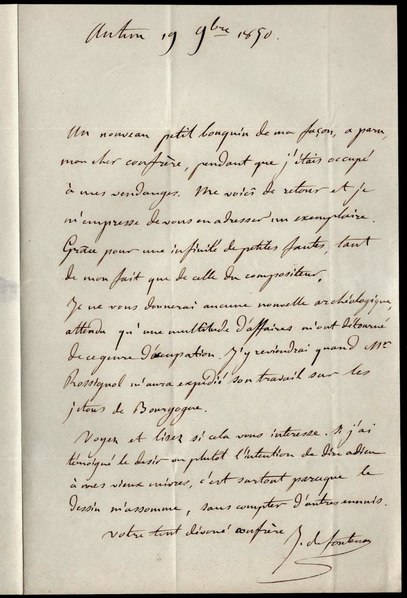 Autun 19 9bre 1850.
Un nouveau petit bouquin de ma façon, a paru,
mon cher confrère, pendant que j'étais occupé
à mes vendanges. Me voici de retour et je
m'empresse de vous en adresser un exemplaire.
Grâce pour une infinité de petites fautes, tant
de mon fait que de celle du compositeur.
Je ne vous donnerai aucune nouvelle archéologique,
attendu qu'une multitude d'affaires m'ont détourné
de ce genre d'occupation. J'y reviendrai quand Mr
Rossignol m'aura expédié son travail sur les
jetons de Bourgogne.
Voyez et lisez si cela vous interesse. Si j'ai
témoigné le desir ou plutot l'intention de dire adieu
à mes vieux cuivres, c'est surtout parceque le
dessin m'assomme, sans compter d'autres ennuis.
Votre tout dévoué confrère
J. de Fontenay